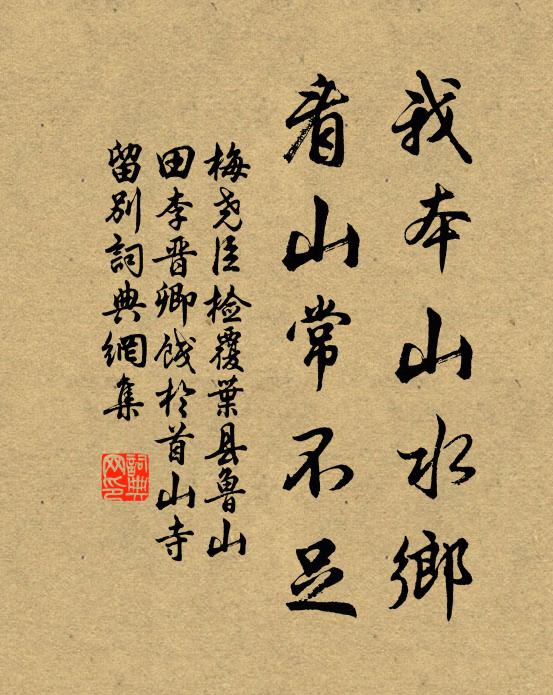 我本山水鄉
看山常不足
梅尧臣检覆葉县魯山
田李晋卿餞於首山寺
留别詞典網集
詞典网印